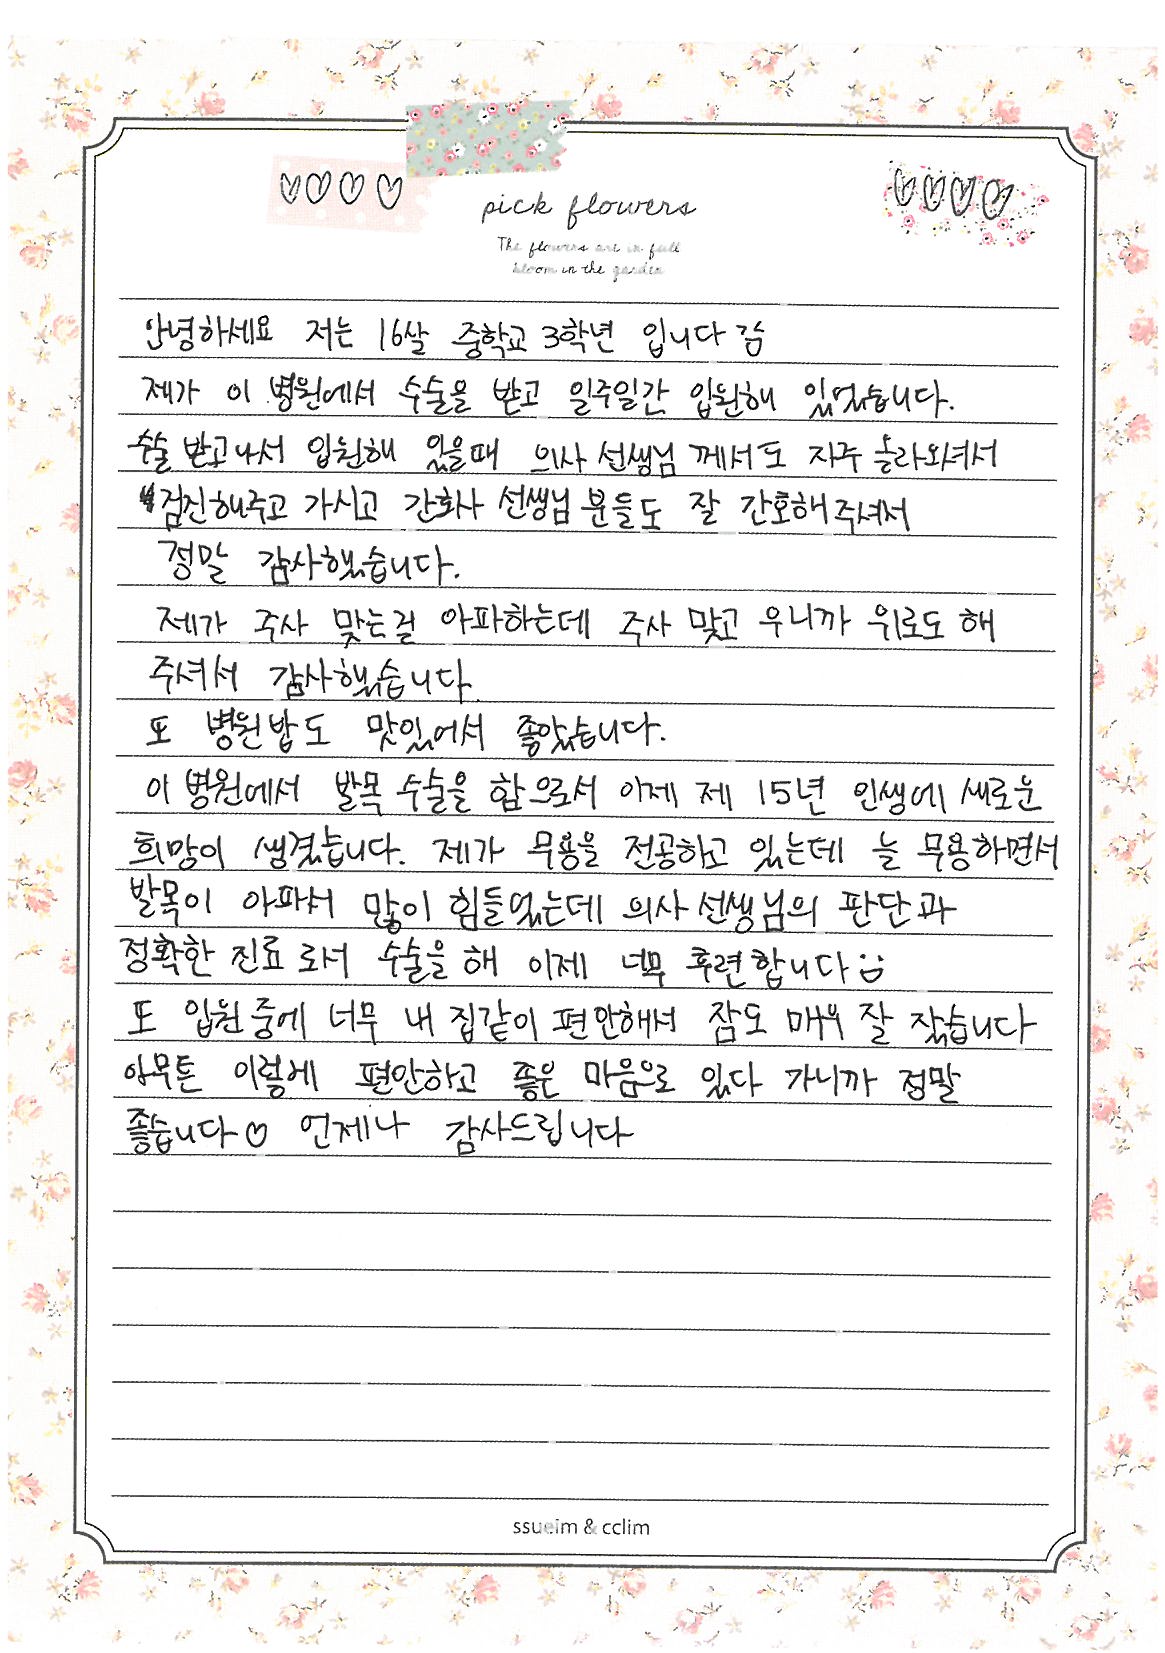 pick flowers
The flowers are in full
bloom in the garden
안녕하세요 저는 16살 중학교 3학년 입니다
제가 이 병원에서 수술을 받고 일주일간 입원해 있었습니다.
수술 받고나서 입원해 있을때 의사 선생님 께서도 자주 올라와셔서
검진해주고 가시고 간호사 선생님 분들도 잘 간호해주셔서
정말 감사했습니다.
제가 주사 맞는걸 아파하는데 주사 맞고 우니까 위로도 해
주셔서 감사했습니다.
또 병원밥도 맛있어서 좋았습니다.
이 병원에서 발목 수술을 함으로서 이제 제 15년 인생에 새로운
희망이 생겼습니다. 제가 무용을 전공하고 있는데 늘 무용하면서
발목이 아파서 많이 힘들었는데 의사 선생님의 판단과
정확한 진료 로서 수술을 해 이제 너무 후련합니다
또 입원중에 너무 내 집같이 편안해서 잠도 매우 잘 잤습니다
아무튼 이렇에 편안하고 좋은 마음으로 있다 가니까 정말
좋습니다♡ 언제나 감사드립니다
ssueim & cclim